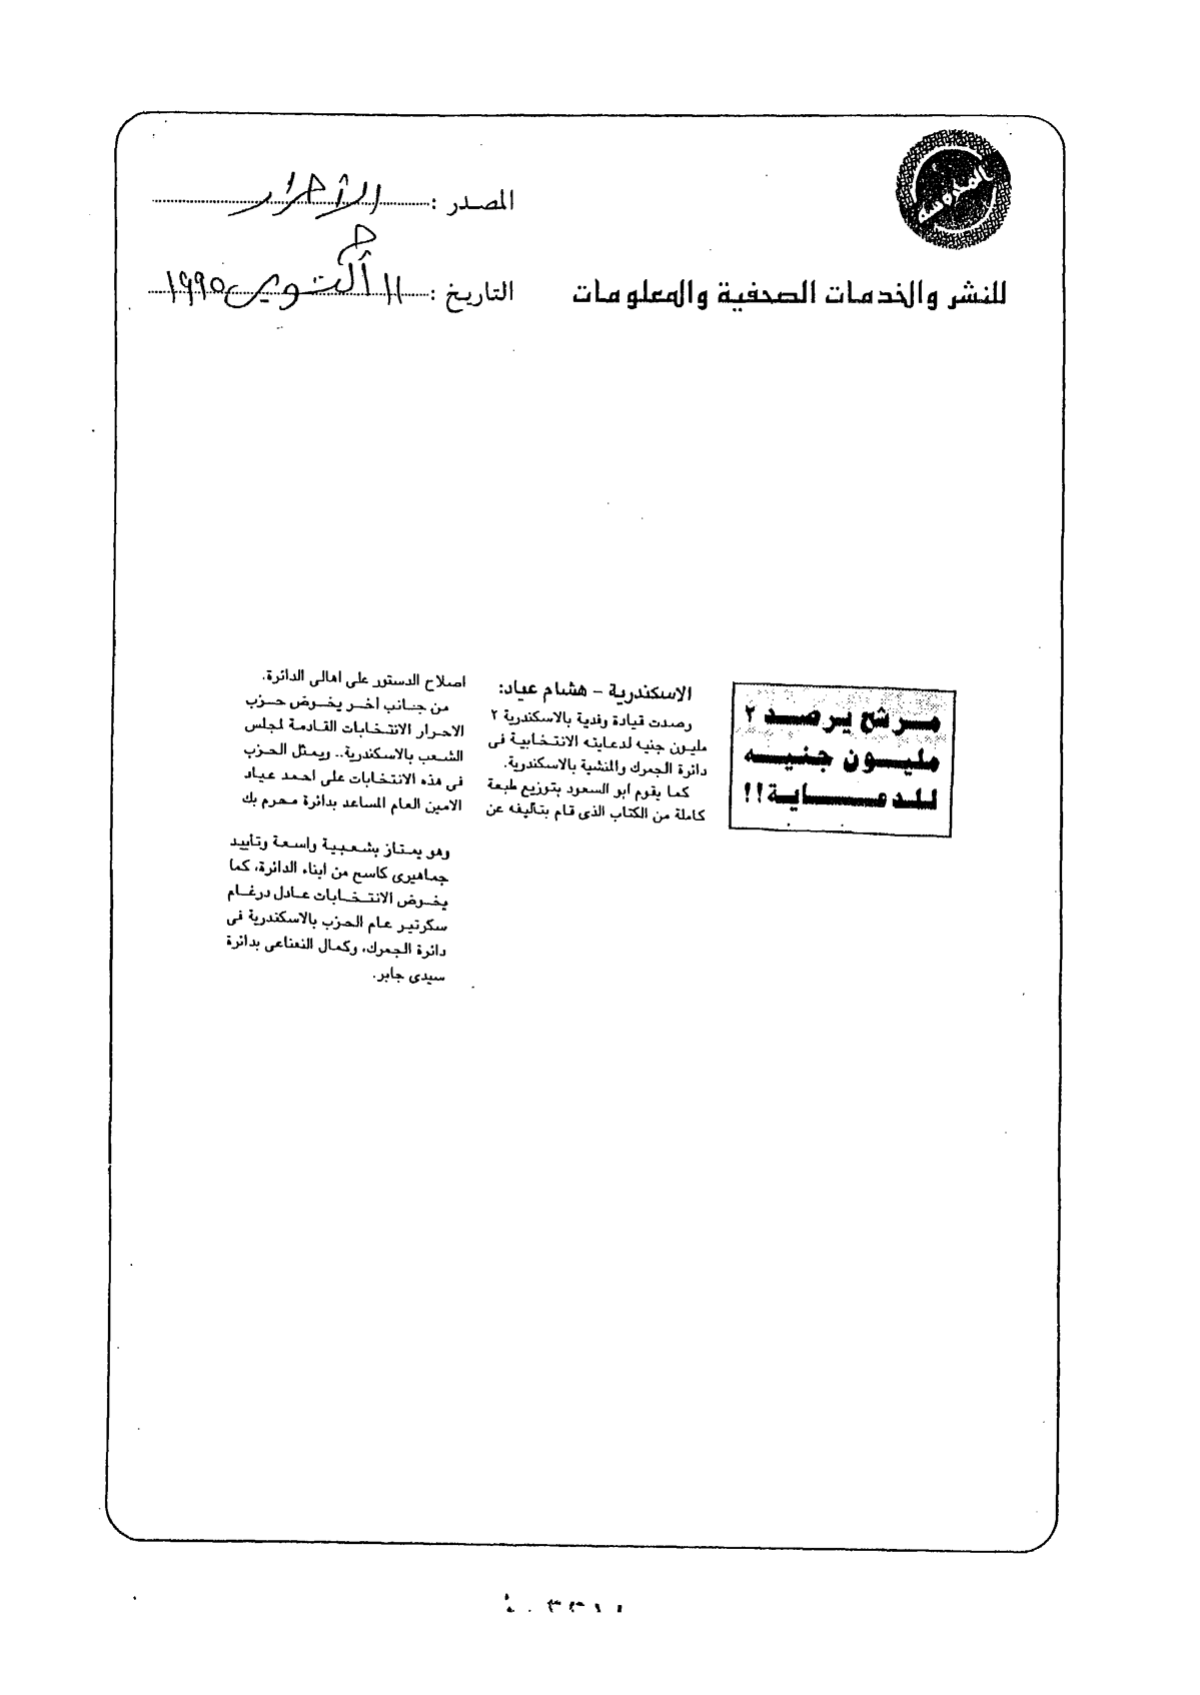 المصدر : الأحرار
للنشر والخدمات الصحفية والمعلومات
التاريخ : ١١ أكتوبر ١٩٩٥
مرشح يرصد ٢
مليون جنيه
للدعاية!!
الاسكندرية – هشام عياد:
رصدت قيادة وفدية بالاسكندرية ٢
مليون جنيه لدعايته الانتخابية فى
دائرة الجمرك والمنشية بالاسكندرية.
كما يقوم ابو السعود بتوزيع طبعة
كاملة من الكتاب الذى قام بتأليفه عن
اصلاح الدستور على اهالى الدائرة.
من جانب اخر يخوض حزب
الاحرار الانتخابات القادمة لمجلس
الشعب بالاسكندرية.. ويمثل الحزب
فى هذه الانتخابات على احمد عياد
الامين العام المساعد بدائرة محرم بك
وهو يمتاز بشعبية واسعة وتأييد
جماهيرى كاسح من ابناء الدائرة، كما
يخوض الانتخابات عادل درغام
سكرتير عام الحزب بالاسكندرية فى
دائرة الجمرك، وكمال النعناعى بدائرة
سيدى جابر.